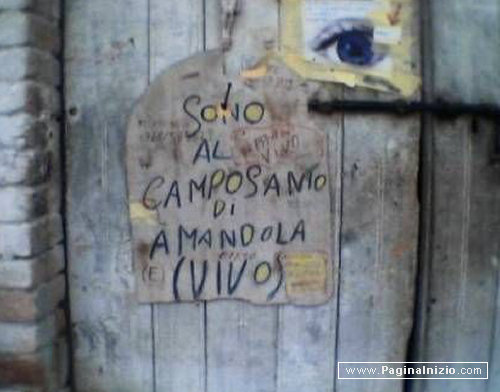 SONO
AL
CAMPOSANTO
DI
AMANDOLA
(E)
(VIVO)
www.PaginaInizio.com